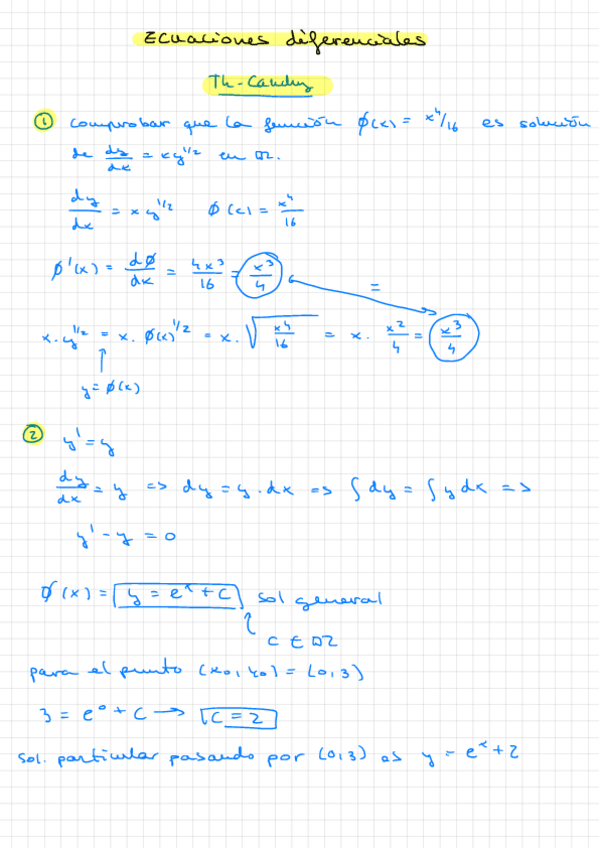 Ecuaciones diferenciales
Th-Cauchy
① comprobar que la función ϕ(x) = x⁴/16 es solución
de dy/dx = xy^1/2 en ℝ.
dy/dx = x y^1/2 ϕ(x) = x⁴/16
ϕ'(x) = dϕ/dx = 4x³/16 = x³/4
=
x·y^1/2 = x·ϕ(x)^1/2 = x·√(x⁴/16) = x·x²/4 = x³/4
y = ϕ(x)
② y' = y
dy/dx = y => dy = y·dx => ∫dy = ∫y dx =>
y' - y = 0
ϕ(x) = y = eˣ + C sol general
C ∈ ℝ
para el punto (x0, y0) = (0,3)
3 = e⁰ + C → C = 2
sol. particular pasando por (0,3) es y = eˣ + 2